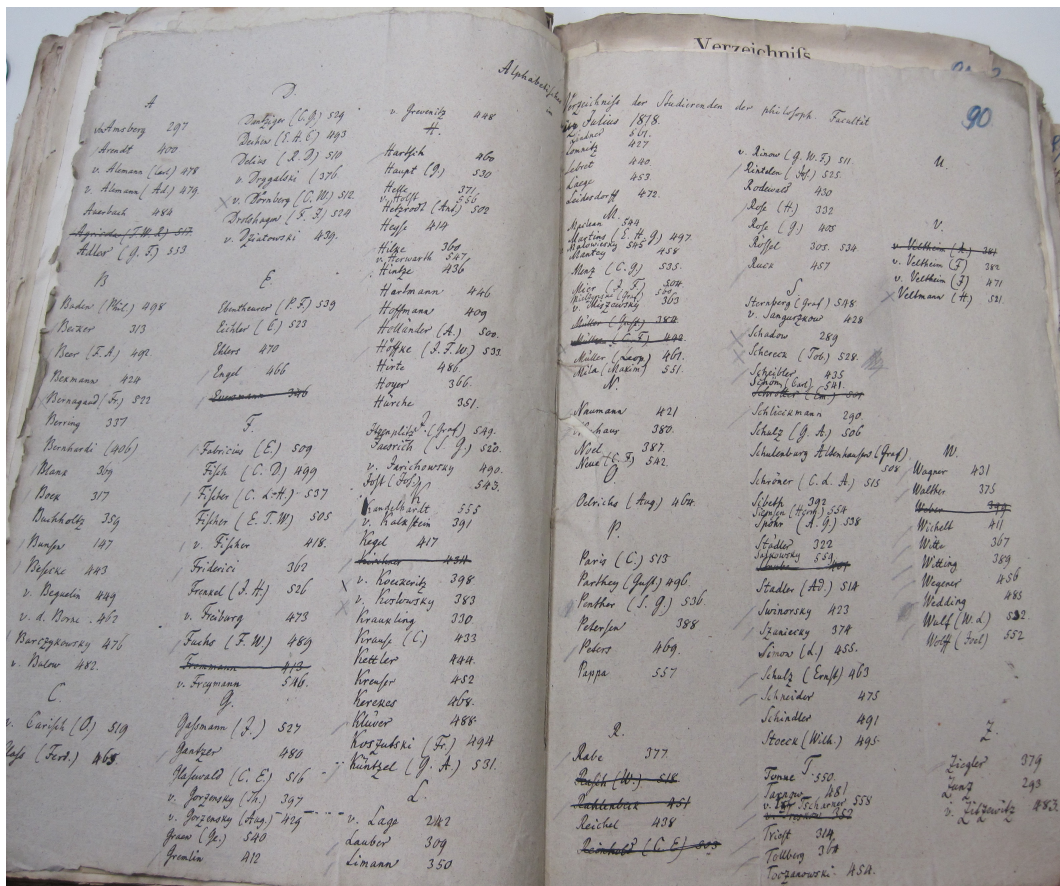 Verzeichniß
90
Alphabetisches Verzeichniß der Studierenden der philosoph. Facultät
im Julius 1818.
A
v. Amsberg 297
Arendt 400
v. Alemann (Carl) 478
v. Alemann (Ad.) 479.
Auerbach 484
Agricola (F.W.L.) 517
Adler (G. F.) 553
B
Baden (Phil.) 498
Beizer 313
Beer (F.A.) 492.
Bexmann 424
Bernagard (Fr.) 522
Berring 337
Bernhardi (406)
Blanz 309
Boez 317
Buchholtz 359
Bunsen 147
Besecke 443
v. Beguelin 449
v. d. Borne 467
Barczykowsky 476
v. Bulow 482.
C
v. Carisch (O.) 519
Class (Ferd.) 465
D.
Dantziger (C.G.) 529
Dechen (E.H.C) 493
Delius (R.D) 510
v. Drygalski (376
v. Dörnberg (C.W.) 512.
Drolshagen (F. F.) 524
v. Dzialowski 439.
E.
Ebentheurer (P.F.) 539
Eichler (C) 523
Ehlers 470
Engel 466
F.
Fabricius (E.) 509
Fisch (C.D) 499
Fischer (C. L.H.) 537
Fischer (E.T.W) 505
v. Fischer 418.
Friderici 362
Frenkel (J.H.) 526
v. Freiburg 473
Fuchs (F.W.) 489
413
v. Freymann 546.
G.
Gaßmann (J.) 527
Gantzer 480
Glasewald (C. E) 516
v. Gorzensky (Th.) 397
v. Gorzensky (Aug.) 429
Graew (Ge.) 540
Gremlin 412
v. Grevenitz 448
H.
Hartsch 460
Haupt (G.) 530
Helle 371
v. Holst 556
Hetzrodt (Ant.) 502
Heyse 414
Hilze 360
v. Herwarth 547
Hintze 436
Hartmann 446
Hoffmann 409
Hollander (A.) 500.
Höffke (J.F.W.) 533
Hirte 486.
Hoyer 366.
Hürche 351.
J.
Itzenplitz (Graf) 549.
Jaesrich (S. G.) 520.
v. Jarichowsky 490.
Jost (Jos.) 543.
K
Kandelhardt 555
v. Kalkstein 391
Kegel 417
Kirchner 434
v. Koeckeritz 398
v. Koslowsky 383
Krauxling 330
Krause (C.) 433
Kettler 444.
Krenser 452
Kerekes 468.
Klüver 488.
Koszutski (Fr.) 494
Küntzel (G. A.) 531.
L.
v. Lage 242
Lauber 309
Limann 350
Lindner 561.
Lomnitz 427
Lebret 440.
Laege 453
Leidesdorff 472.
M.
Meilean 544
Martins (E.H.G) 497.
545
Mantey 458
Menz (C.G) 535.
Meier (J. F) 504
363
Müller (Gust.) 384
Müller (C.F) 442
Müller 461.
Mila (Maxim) 551.
N
Naumann 421
Neuhaus 380.
Noel 387.
Neue (C. F) 542.
O.
Oelrichs (Aug) 464.
P.
Paris (C.) 513
Parthey (Gust.) 496.
Penther (S. G) 536.
Petersen 388
Peters 469.
Pappa 557
R.
Rabe 377.
Reusch (W.) 518
Rahlenbeck 451
Reichel 438
Reinhold (C. E) 503
v. Rinow (G.W.F.) 511.
Rintelen (Jos.) 525.
Rodewald 430
Rose (H.) 332
Rose (G.) 405
Rössel 305. 534
Ruck 457
S
Sternberg (Graf) 548.
v. Sanguszkow 428
Schadow 289
Schereck (Tob.) 528.
Scheibler 435
Schön (Carl) 541.
Schröter (Em) 501
Schlieckmann 290.
Schulz (G. A) 506
Schulenburg Altenhausen (Graf) 508
Schröner (C.L.A.) 515
Sibeth 392
Siemsen (Herm.) 554
Spohr (A.G) 538
Städler 322
559
Stadler (Ad.) 514
Swinorsky 423
Szaniecky 374
Simon (L.) 455.
Schulz (Ernst) 463
Schneider 475
Schindler 491
Stoeck (Wilh.) 495.
T
Tonne 550.
Tarnow 481
v. Tscharner 558
Triest 314
Tellberg 364
Toczanowski. 454.
U.
V.
v. Veltheim (A.) 381
v. Veltheim (F) 382
v. Veltheim (F) 471
Veltmann (H.) 521.
W.
Wagner 431
Walther 375
Weber 344
Wichelt 411
Witte 367
Witting 389
Wegener 456
Wedding 485
Wulf (W.L) 532.
Wolff (Joel) 552
Z.
Ziegler 379
Zunz 293
v. Zitzewitz 483.